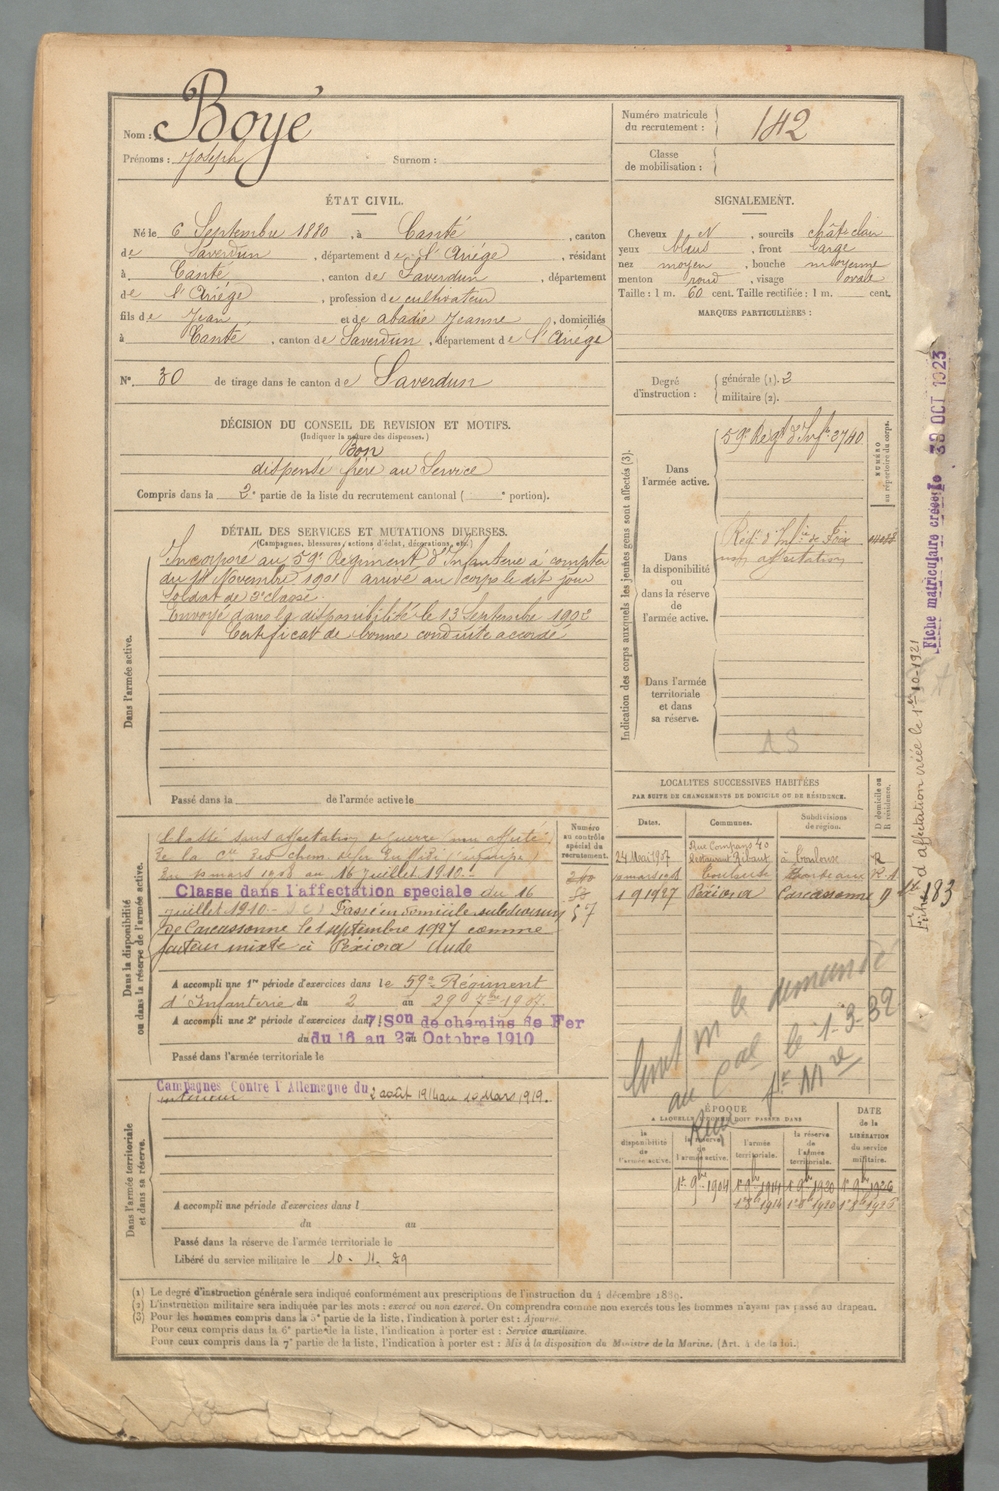 Nom : Boyé
Prénoms : Joseph Surnom :
Numéro matricule du recrutement : 142
Classe de mobilisation :
ÉTAT CIVIL.
Né le 6 Septembre 1880, à Canté, canton
de Saverdun, département de l'Ariége, résidant
à Canté, canton de Saverdun, département
de l'Ariége, profession de cultivateur
fils de Jean et de Abadie Jeanne, domiciliés
à Canté, canton de Saverdun, département de l'Ariége
N° 30 de tirage dans le canton de Saverdun
SIGNALEMENT.
Cheveux N, sourcils chât. clair
yeux bleus, front large
nez moyen, bouche moyenne
menton rond, visage ovale
Taille : 1 m. 60 cent. Taille rectifiée : 1 m. cent.
MARQUES PARTICULIÈRES :
Degré d'instruction : générale (1). 2
militaire (2).
DÉCISION DU CONSEIL DE REVISION ET MOTIFS.
(Indiquer la nature des dispenses.)
Bon
dispensé frère au Service
Compris dans la 2e partie de la liste du recrutement cantonal ( e portion).
DÉTAIL DES SERVICES ET MUTATIONS DIVERSES.
(Campagnes, blessures, actions d'éclat, décorations, etc.)
Dans l'armée active.
Incorporé au 59e Régiment d'Infanterie à compter
du 14 Novembre 1901 arrivé au corps le dit jour
Soldat de 2e classe.
Envoyé dans la disponibilité le 13 Septembre 1902
Certificat de bonne conduite accordé
Passé dans la de l'armée active le
Indication des corps auxquels les jeunes gens sont affectés (3).
NUMÉRO au répertoire du corps.
Dans l'armée active.
59e Régt d'Infie 2740
Dans la disponibilité ou dans la réserve de l'armée active.
Régt d'Infie de Foix
non affectation
Dans l'armée territoriale et dans sa réserve.
AS
LOCALITÉS SUCCESSIVES HABITÉES
PAR SUITE DE CHANGEMENTS DE DOMICILE OU DE RÉSIDENCE.
Dates. Communes. Subdivisions de région. D domicile ou R résidence.
Rue Compans 40
24 Mai 1907 Restaurant Ribaut à Toulouse R
10 mars 1908 Toulouse
1 9 1927 Péxiora Carcassonne D
Dans la disponibilité ou dans la réserve de l'armée active.
Numéro au contrôle spécial du recrutement.
Classé sans affectation de guerre
de la Cie des chem. de fer du Midi
du 10 mars 1908 au 16 juillet 1910.
Classé dans l'affectation spéciale du 16
juillet 1910. Passé en domicile subdivision
de Carcassonne le 1 septembre 1927 comme
facteur mixte à Péxiora Aude
57
A accompli une 1re période d'exercices dans le 59e Régiment
d'Infanterie du 2 au 29 7bre 1907.
A accompli une 2e période d'exercices dans 7e Son de chemins de Fer
du 16 au 27 Octobre 1910
Passé dans l'armée territoriale le
Dans l'armée territoriale et dans sa réserve.
Campagnes Contre l'Allemagne du 2 août 1914 au 10 Mars 1919.
intérieur
A accompli une période d'exercices dans l
du au
Passé dans la réserve de l'armée territoriale le
Libéré du service militaire le 10. 11. 29
le demande
au Cal le 1-3-32
ÉPOQUE
A LAQUELLE L'HOMME DOIT PASSER DANS
DATE de la LIBÉRATION du service militaire.
la disponibilité de l'armée active. la réserve de l'armée active. l'armée territoriale. la réserve de l'armée territoriale.
1er 9bre 1904 1er 9bre 1914 1er 9bre 1920 1er 9bre 1926
1er 8bre 1914 1er 8bre 1920
(1) Le degré d'instruction générale sera indiqué conformément aux prescriptions de l'instruction du 4 décembre 1889.
(2) L'instruction militaire sera indiquée par les mots : exercé ou non exercé. On comprendra comme non exercés tous les hommes n'ayant pas passé au drapeau.
(3) Pour les hommes compris dans la 5e partie de la liste, l'indication à porter est : Ajourné.
Pour ceux compris dans la 6e partie de la liste, l'indication à porter est : Service auxiliaire.
Pour ceux compris dans la 7e partie de la liste, l'indication à porter est : Mis à la disposition du Ministre de la Marine. (Art. 4 de la loi.)
Fiche matriculaire créée le 30 OCT 1923
Fiche d'affectation créée le 1er-10-1921
183